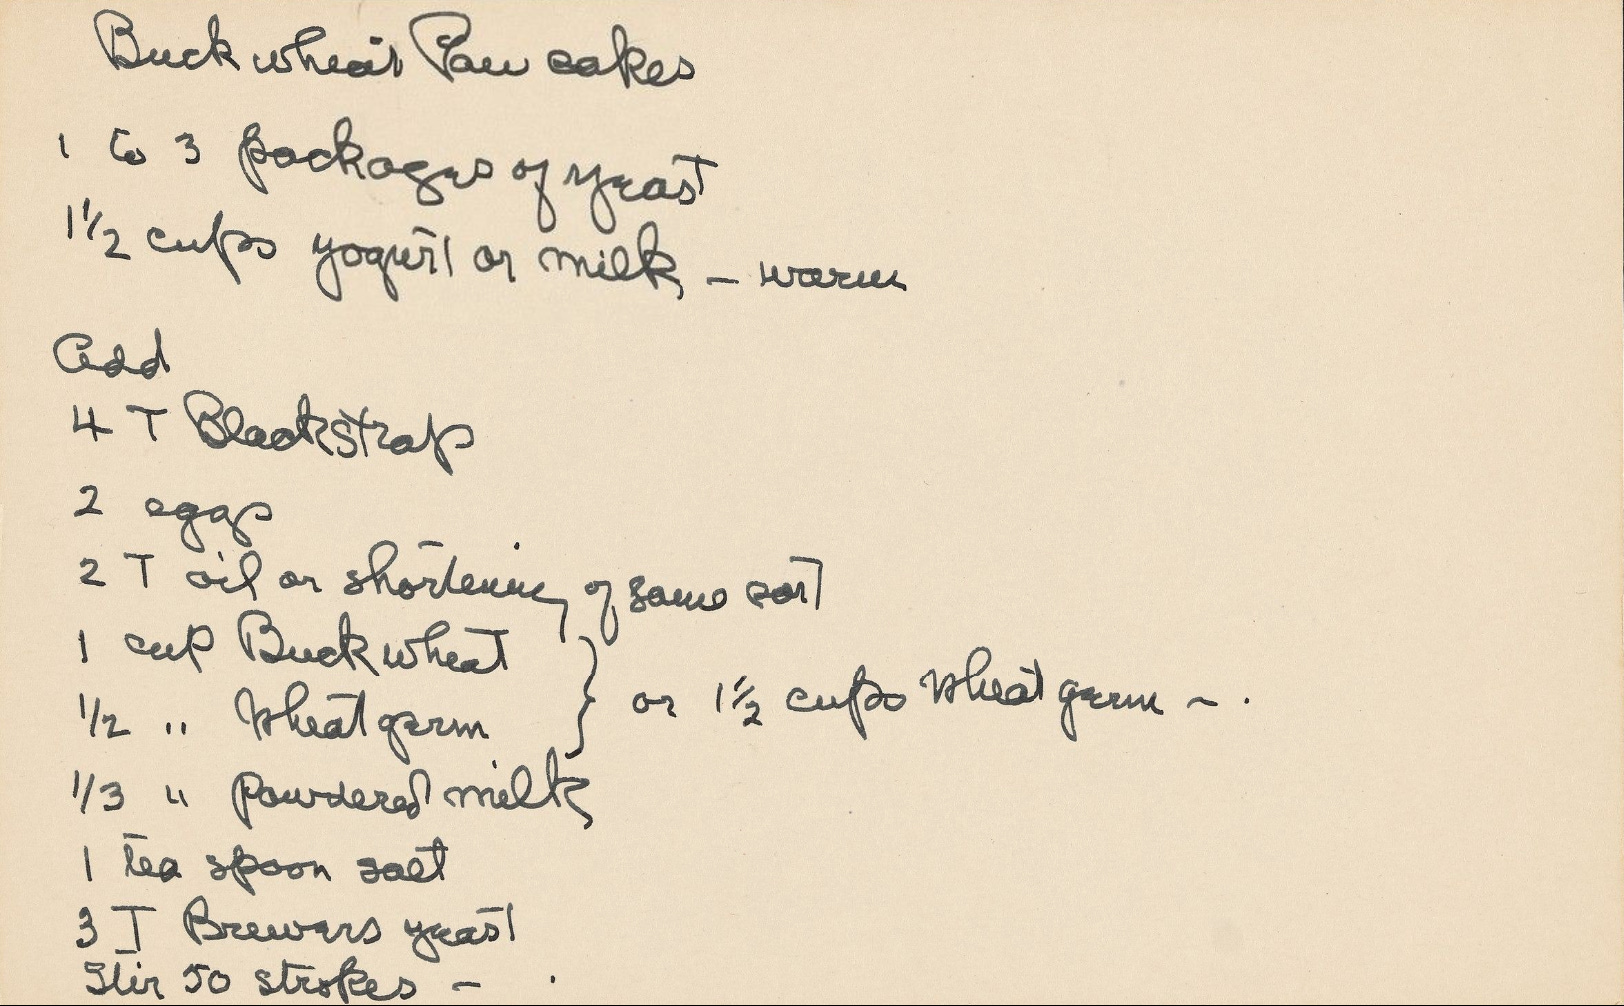 Buckwheat Pancakes
1 to 3 packages of yeast
1 1/2 cups yogurt or milk - warm
Add
4 T Blackstrap
2 eggs
2 T oil or shortening of some sort
1 cup Buckwheat
1/2 " Wheat germ } or 1 1/2 cups Wheat germ - .
1/3 " powdered milk
1 tea spoon salt
3 T Brewers yeast
Stir 50 strokes -